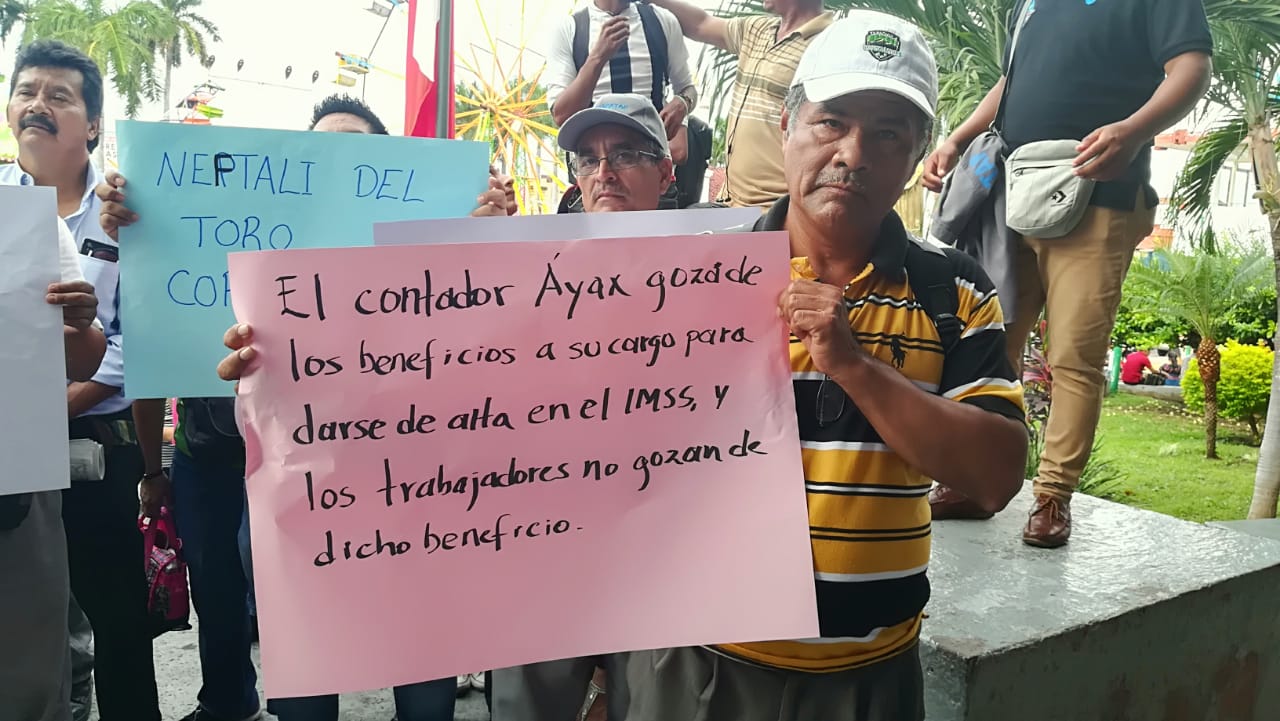 NEPTALI DEL
TORO
El contador Áyax goza de
los beneficios a su cargo para
darse de alta en el IMSS, y
los trabajadores no gozan de
dicho beneficio.